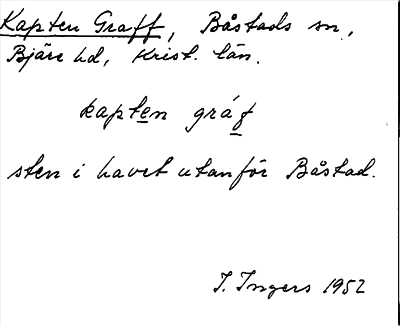 Kapten Graff, Båstads sn,
Bjäre hd, Krist. län.
kapten gráf
sten i havet utanför Båstad.
I. Ingers 1952